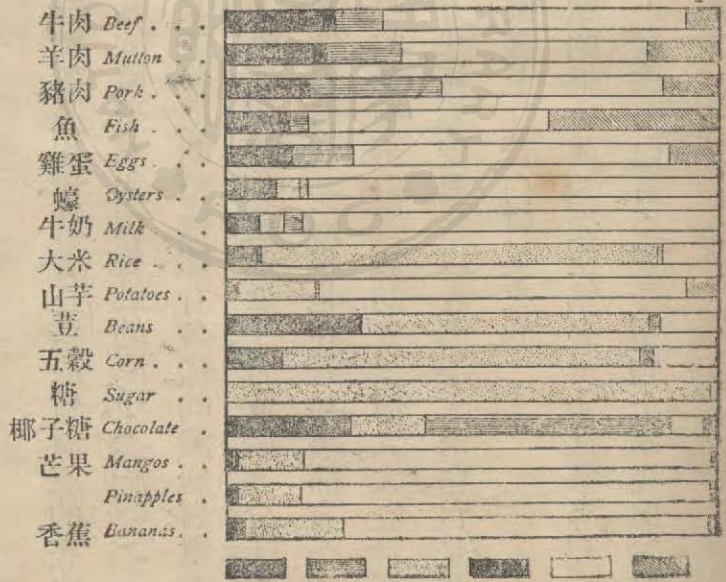 牛肉 Beef . . .
羊肉 Mutton . .
豬肉 Pork . . .
魚 Fish . . .
雞蛋 Eggs . . .
蠔 Oysters . .
牛奶 Milk . . .
大米 Rice . . .
山芋 Potatoes . .
荳 Beans . .
五穀 Corn . . .
糖 Sugar . .
椰子糖 Chocolate .
芒果 Mangos . .
Pinapples .
香蕉 Bananas . .